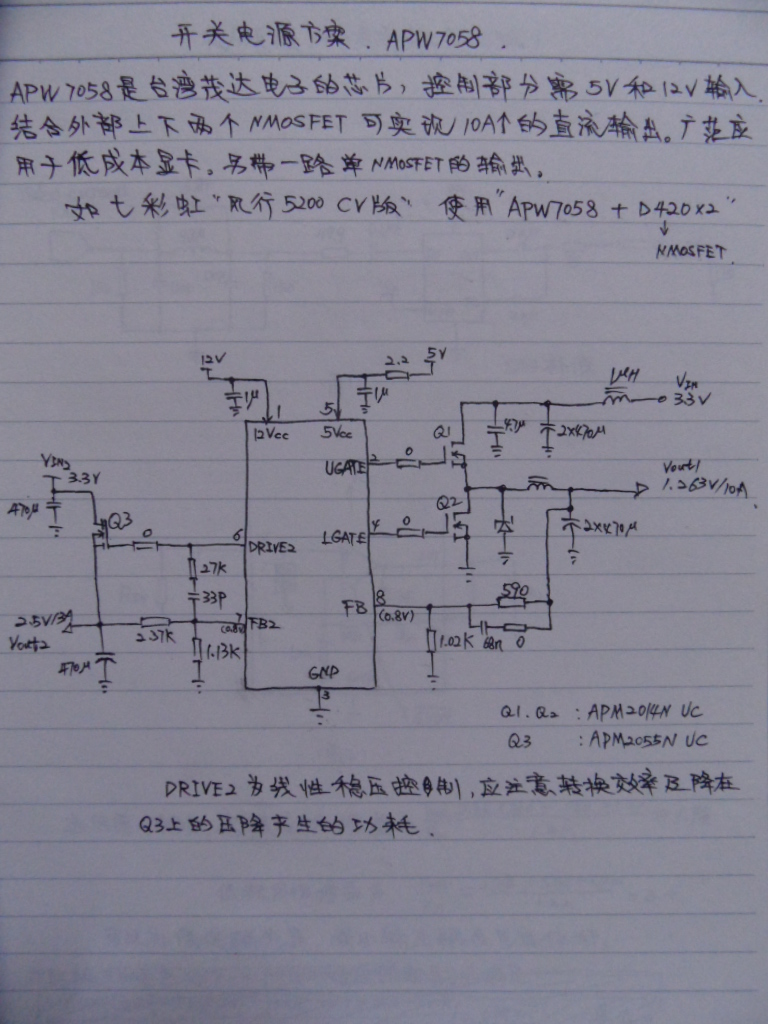 开关电源方案. APW7058.
APW7058是台湾茂达电子的芯片，控制部分需5V和12V输入.
结合外部上下两个NMOSFET可实现10A↑的直流输出。广范应
用于低成本显卡。另带一路单NMOSFET的输出。
如七彩虹"风行5200 CV版" 使用"APW7058 + D420×2"
↓
NMOSFET.
12V 2.2 5V 1μH VIN
1μ 1μ 3.3V
1 5
12Vcc 5Vcc Q1 4.7μ 2×470μ
UGATE 2 0
VIN2 3.3V
470μ Q3 0 6 DRIVE2 LGATE 4 0 Q2 Vout1
1.263V/10A.
2×470μ
27K
33P
FB 8 (0.8V) 590
2.5V/3A 2.37K 7 (0.8V) FB2 1.02K 68n 0
Vout2
470μ 1.13K
GND
3
Q1. Q2 : APM2014N UC
Q3 : APM2055N UC
DRIVE2为线性稳压控制, 应注意转换效率及降在
Q3上的压降产生的功耗.